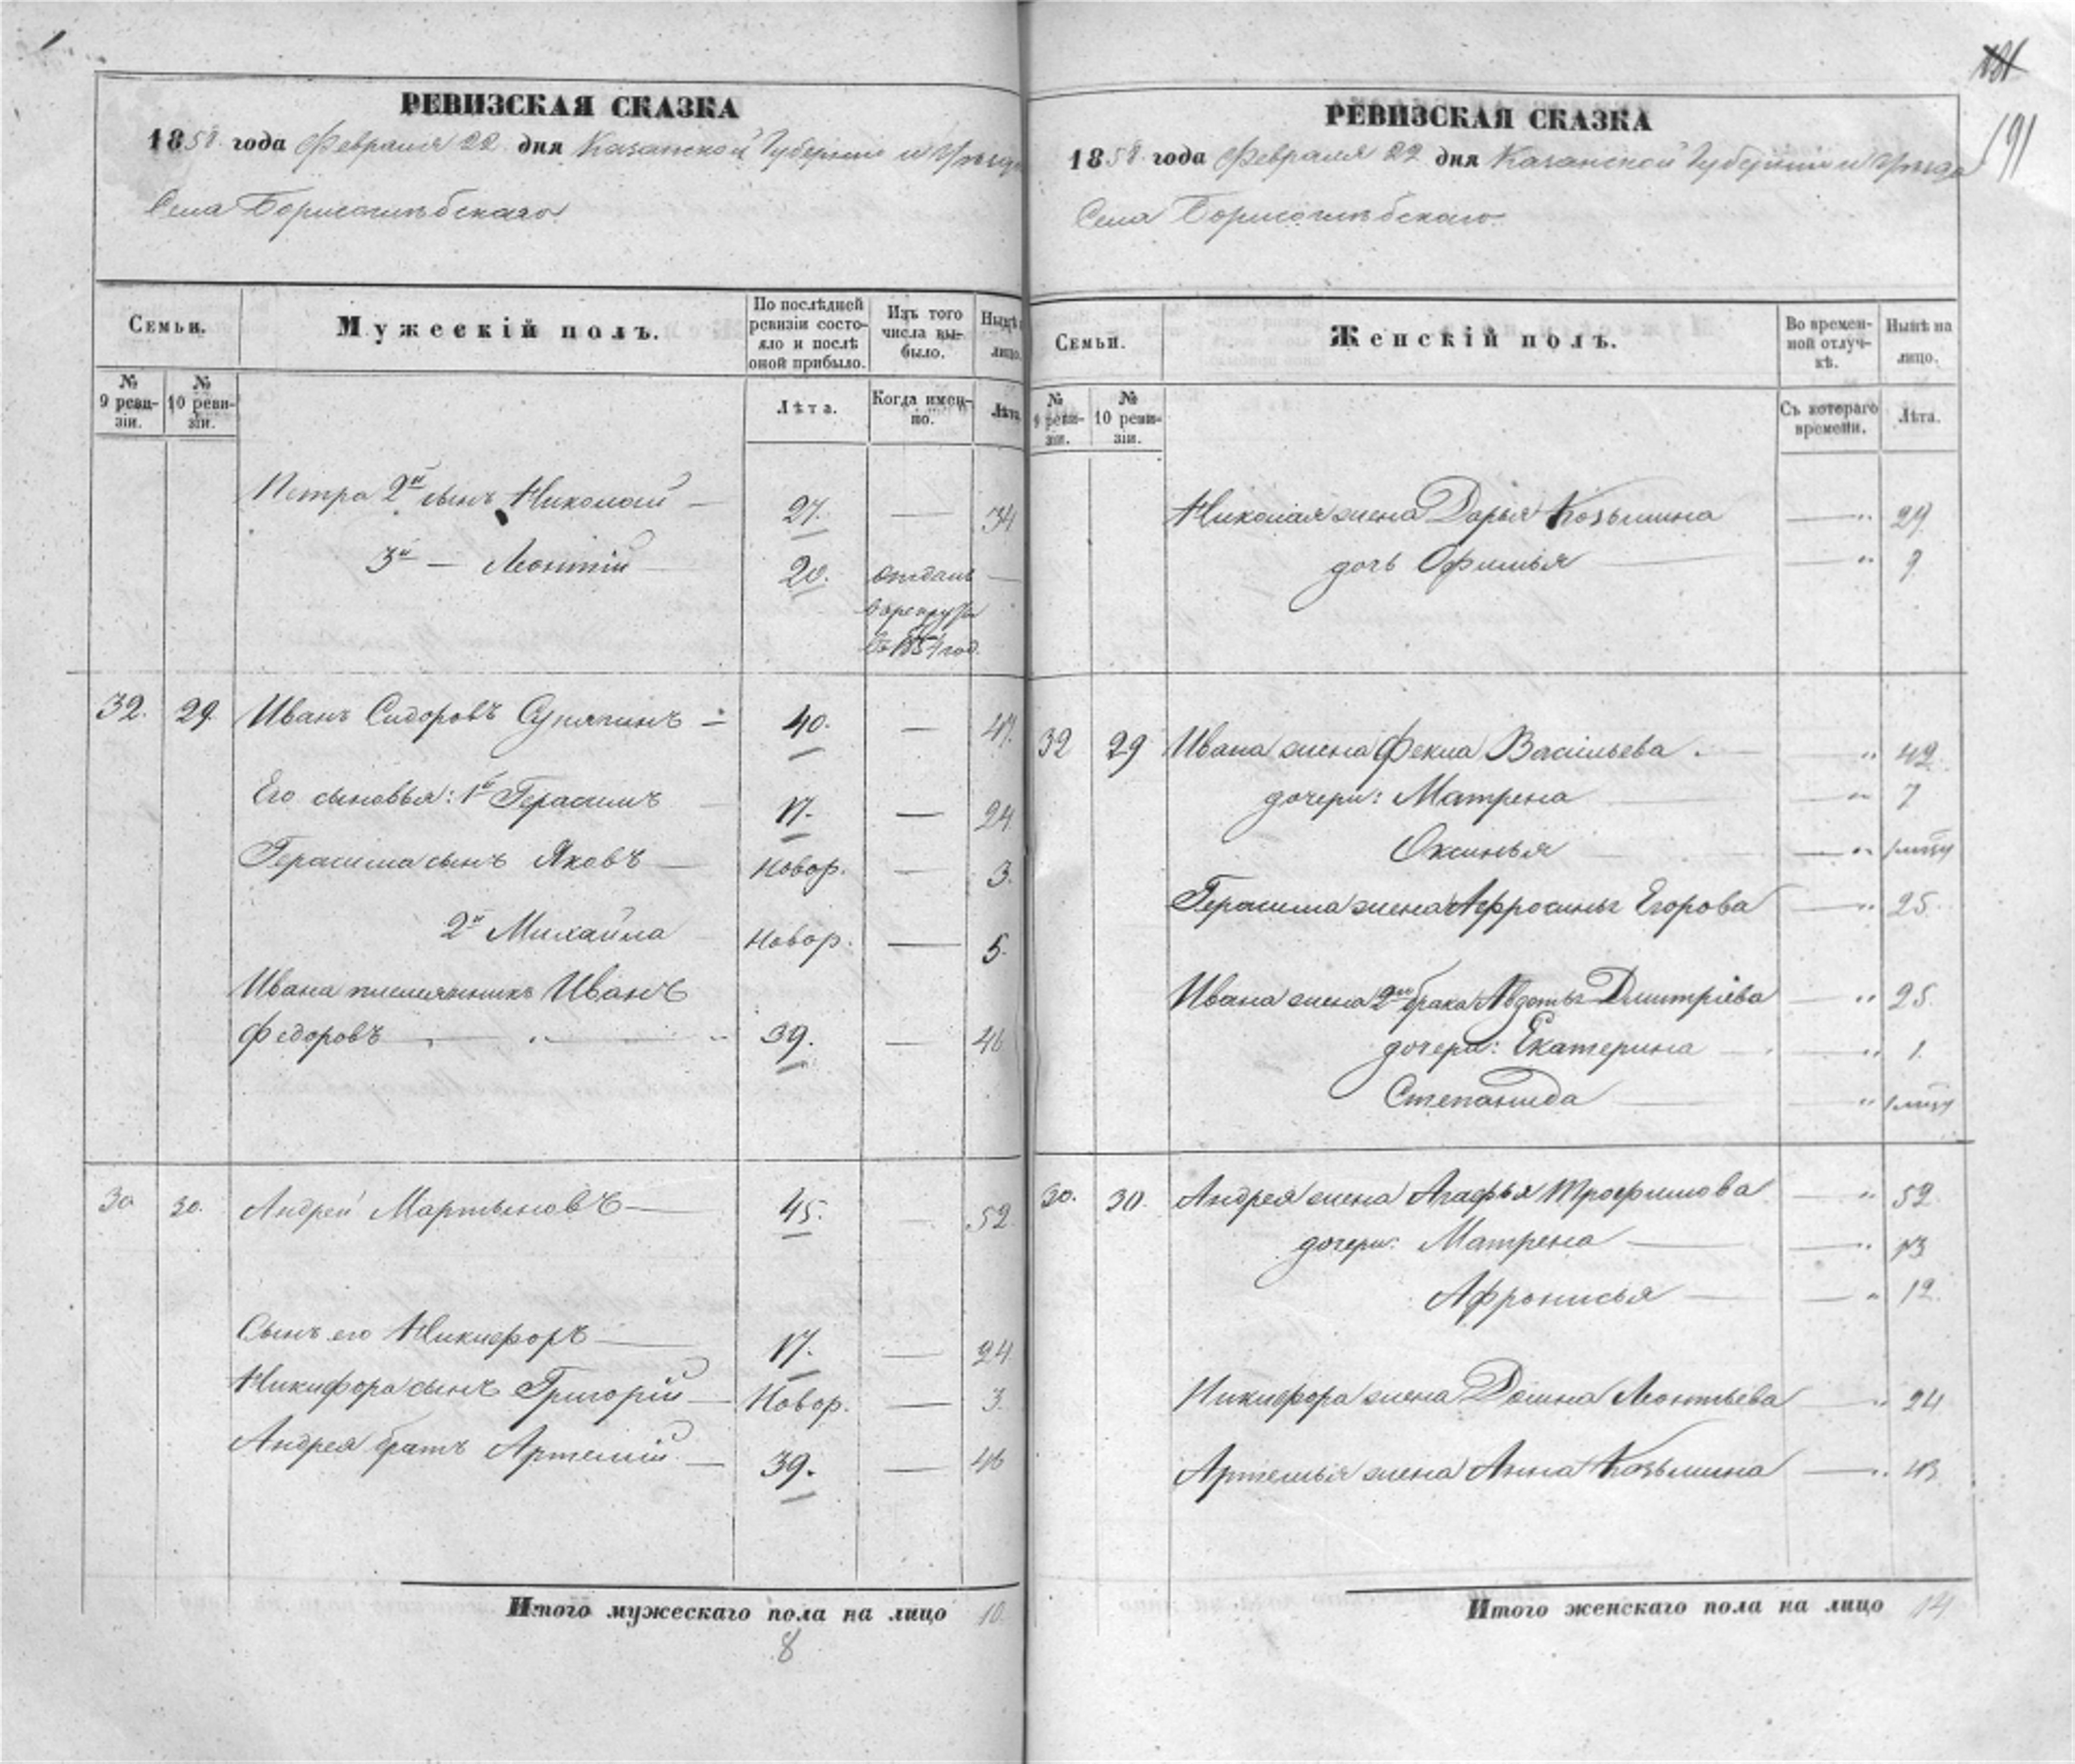 РЕВИЗСКАЯ СКАЗКА
1858 года Февраля 22 дня Казанской Губерніи и Уѣзда
Села Борисоглѣбскаго
Семьи.
Мужескій полъ.
По послѣдней ревизіи состояло и послѣ оной прибыло.
Изъ того числа выбыло.
Нынѣ лицо.
№ 9 ревизіи.
№ 10 ревизіи.
Лѣта.
Когда именно.
Лѣта
Петра 2й сынъ Николай — 27. — 34
3й — Леонтій — 20. отданъ —
в рекруты
въ 1854 год.
32. 29. Иванъ Сидоровъ — 40. — 47.
Его сыновья: 1й Герасимъ — 17. — 24
Герасима сынъ Яковъ — Новор. — 3.
2й Михайла — Новор. — 5.
Ивана племянникъ Иванъ
Федоровъ — 39. — 46
30 30. Андрей Мартыновъ — 45. — 52.
Сынъ его Никифоръ — 17. — 24.
Никифора сынъ Григорій — Новор. — 3.
Андрея братъ Артемій — 39. — 46
Итого мужескаго пола на лицо 10.
8
181
191
РЕВИЗСКАЯ СКАЗКА
1858 года Февраля 22 дня Казанской Губерніи и Уѣзда
Села Борисоглѣбскаго
Семьи.
Женскій полъ.
Во временной отлучкѣ.
Нынѣ на лицо.
№ 9 ревизіи.
№ 10 ревизіи.
Съ котораго времени.
Лѣта.
Николая жена Дарья Козьмина — " 29
дочь Офимья — " 9
32 29 Ивана жена Фекла Васильева. — " 42.
дочери: Матрена — " 7
Оксинья — "
Герасима жена Афросинья Егорова — " 25.
Ивана жена 2го брака Авдотья Дмитріева — " 25.
дочери: Екатерина — " 1.
Степанида — "
30. 30. Андрея жена Агафья Трофимова — " 52.
дочери: Матрена — " 13
Афронисья — " 12.
Никифора жена Домна Леонтьева — " 24
Артемья жена Анна Козьмина — " 43.
Итого женскаго пола на лицо 14